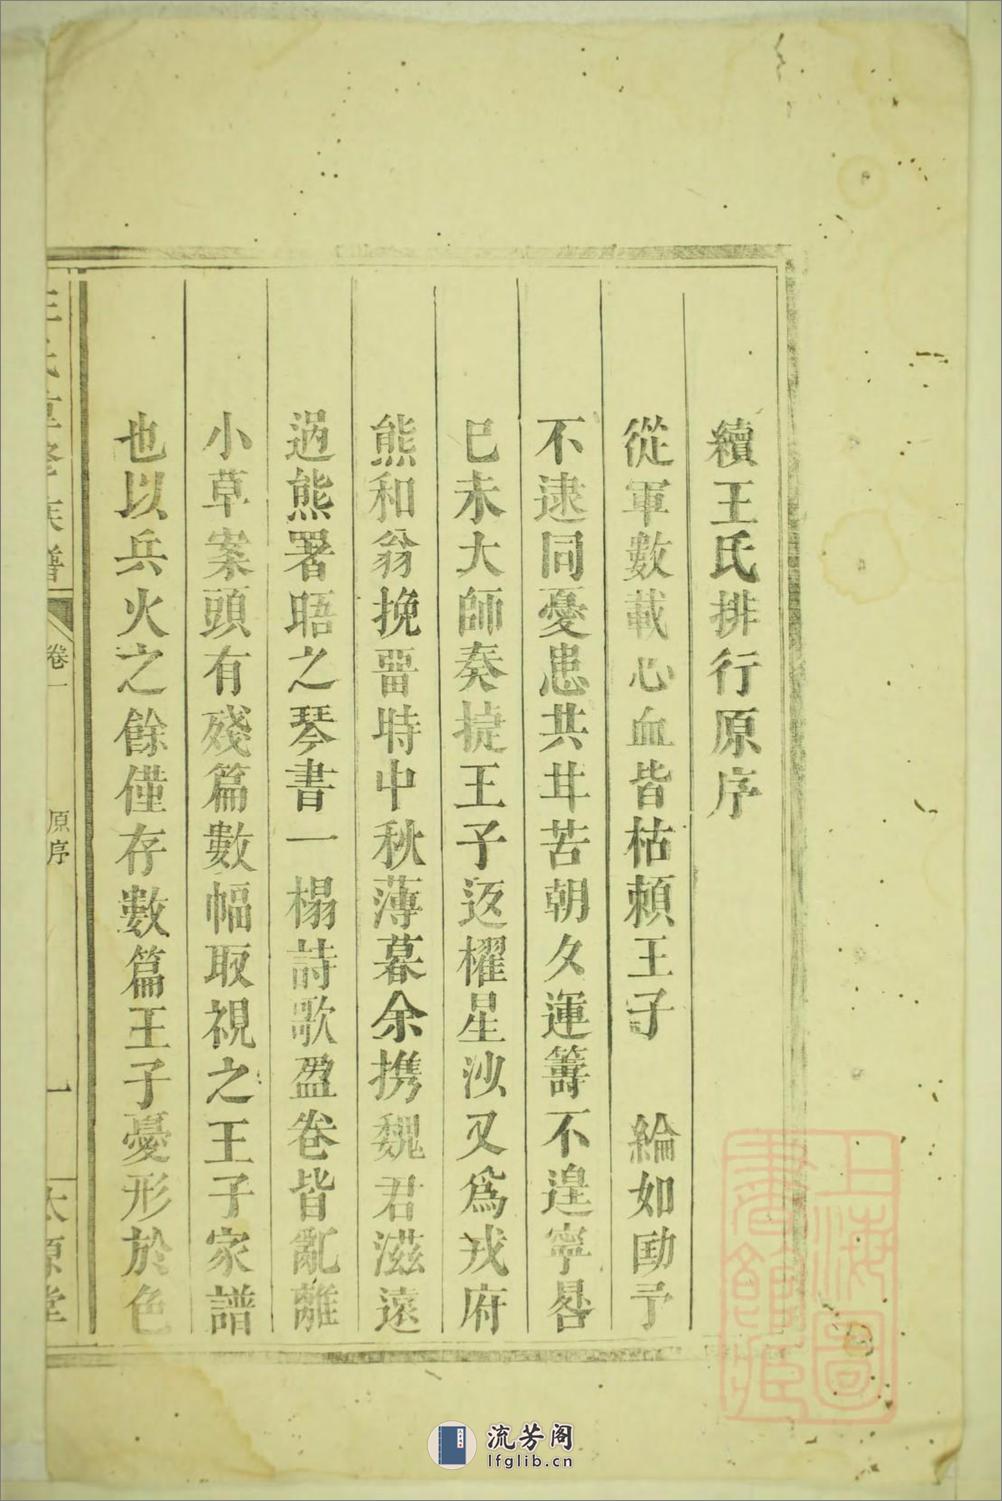 續王氏排行原序
從軍數載心血皆枯賴王子 綸如勖予
不逮同憂患共甘苦朝夕運籌不遑寧晷
巳未大師奏捷王子返櫂星沙又為戎府
熊和翁挽畱時中秋薄暮余携魏君滋遠
過熊署晤之琴書一榻詩歌盈卷皆亂離
小草案頭有殘篇數幅取視之王子家譜
也以兵火之餘僅存數篇王子憂形於色
族譜
卷一
原序
一
太原堂
上海圖書館藏
流芳阁
lfglib.cn